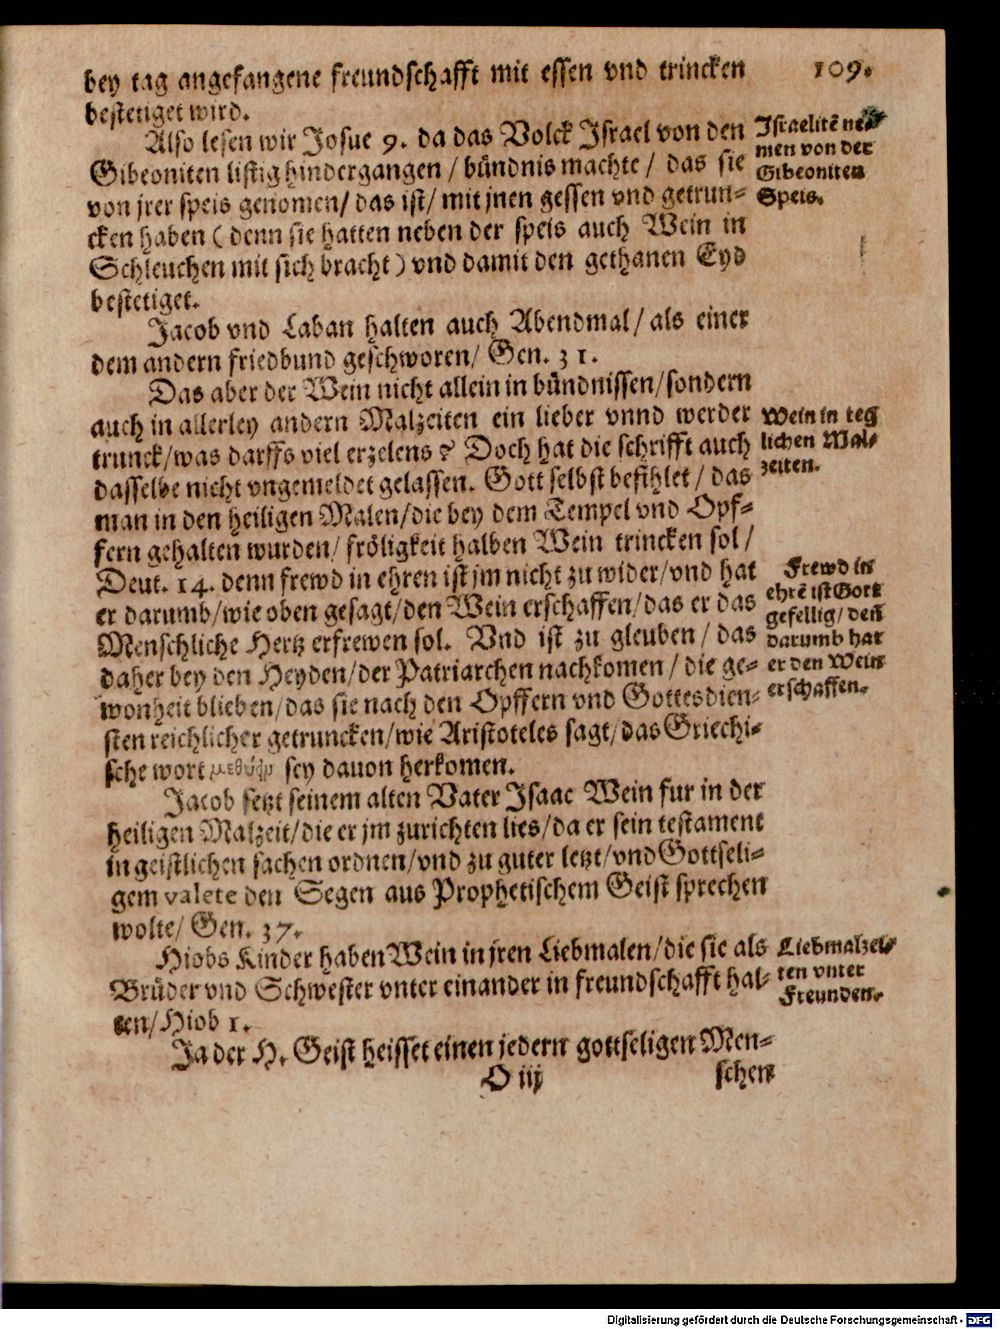 109.
bey tag angefangene freundschafft mit essen vnd trincken
bestetiget wird.
Also lesen wir Josue 9. da das Volck Israel von den
Gibeoniten listig hindergangen / bündnis machte / das sie
von jrer speis genomen/ das ist/ mit jnen gessen vnd getrun-
cken haben ( denn sie hatten neben der speis auch Wein in
Schleuchen mit sich bracht ) vnd damit den gethanen Eyd
bestetiget.
Israelitē ne-
men von der
Gibeoniten
Speis.
Jacob vnd Laban halten auch Abendmal/ als einer
dem andern friedbund geschworen/ Gen. 31.
Das aber der Wein nicht allein in bündnissen/sondern
auch in allerley andern Malzeiten ein lieber vnnd werder
trunck/was darffs viel erzelens? Doch hat die schrifft auch
dasselbe nicht vngemeldet gelassen. Gott selbst befihlet / das
man in den heiligen Malen/die bey dem Tempel vnd Opf-
fern gehalten wurden/ fröligkeit halben Wein trincken sol/
Deut. 14. denn frewd in ehren ist jm nicht zu wider/vnd hat
er darumb/wie oben gesagt/den Wein erschaffen/das er das
Menschliche Hertz erfrewen sol. Vnd ist zu gleuben / das
daher bey den Heyden/der Patriarchen nachkomen / die ge-
wonheit blieben/das sie nach den Opffern vnd Gottesdien-
sten reichlicher getruncken/wie Aristoteles sagt/das Griechi-
sche wort sey dauon herkomen.
Wein in teg
lichen Mal-
zeiten.
Frewd in
ehrē ist Gott
gefellig/ deñ
darumb hat
er den Wein
erschaffen.
Jacob setzt seinem alten Vater Isaac Wein fur in der
heiligen Malzeit/die er jm zurichten lies/da er sein testament
in geistlichen sachen ordnen/vnd zu guter letzt/vnd Gottseli-
gem valete den Segen aus Prophetischem Geist sprechen
wolte/ Gen. 37.
Hiobs Kinder haben Wein in jren Liebmalen/die sie als
Brüder vnd Schwester vnter einander in freundschafft hal-
ten/Hiob 1.
Liebmalzei-
ten vnter
Freunden.
Ja der H. Geist heisset einen jedern gottseligen Men-
O iij
schen
Digitalisierung gefördert durch die Deutsche Forschungsgemeinschaft - DFG